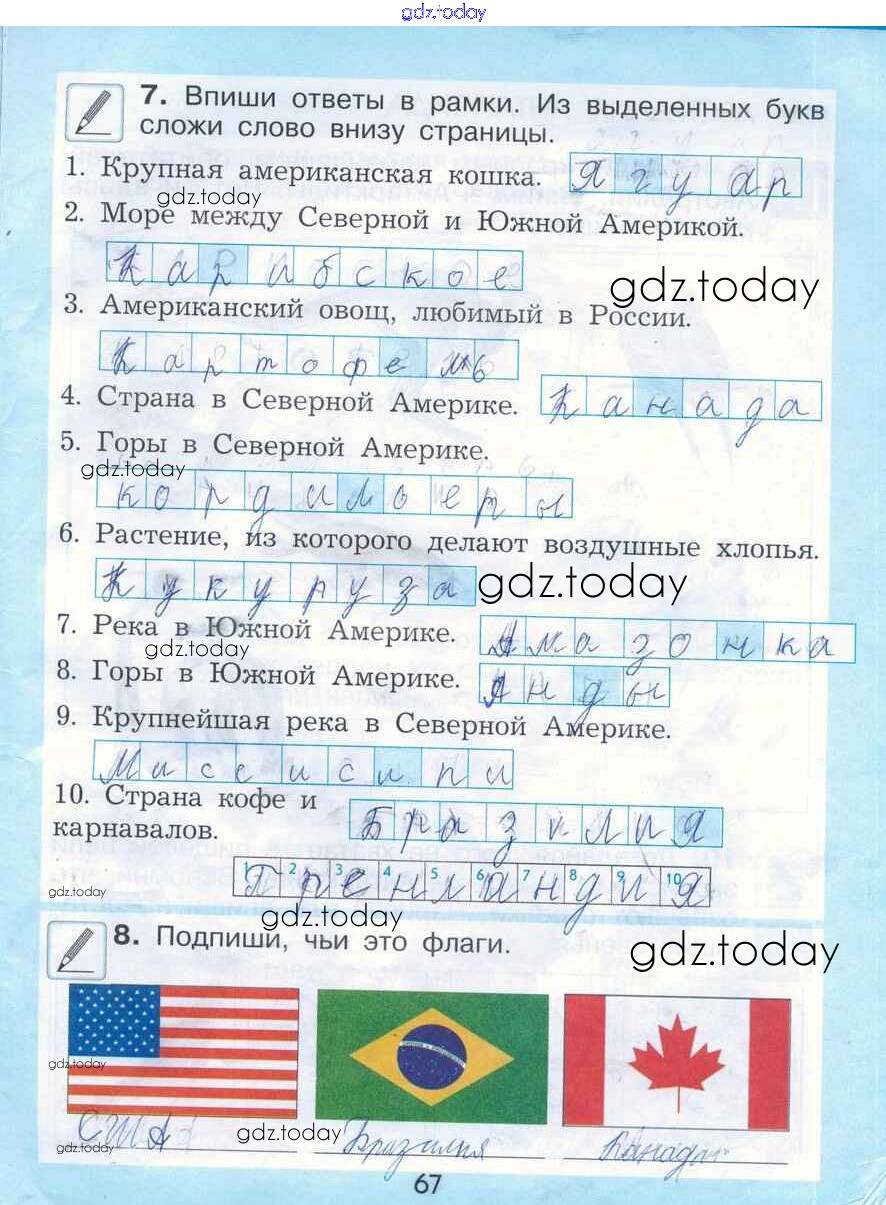 gdz.today
7. Впиши ответы в рамки. Из выделенных букв
сложи слово внизу страницы.
1. Крупная американская кошка. Ягуар
gdz.today
2. Море между Северной и Южной Америкой.
Карибское
gdz.today
3. Американский овощ, любимый в России.
Картофель
4. Страна в Северной Америке. Канада
5. Горы в Северной Америке.
gdz.today
кордильеры
6. Растение, из которого делают воздушные хлопья.
Кукуруза gdz.today
7. Река в Южной Америке. Амазонка
gdz.today
8. Горы в Южной Америке. Анды
9. Крупнейшая река в Северной Америке.
Миссисипи
10. Страна кофе и
карнавалов. Бразилия
1 2 3 4 5 6 7 8 9 10
Гренландия
gdz.today
gdz.today
8. Подпиши, чьи это флаги.
gdz.today
gdz.today
США Бразилия Канада
gdz.today
gdz.today
67